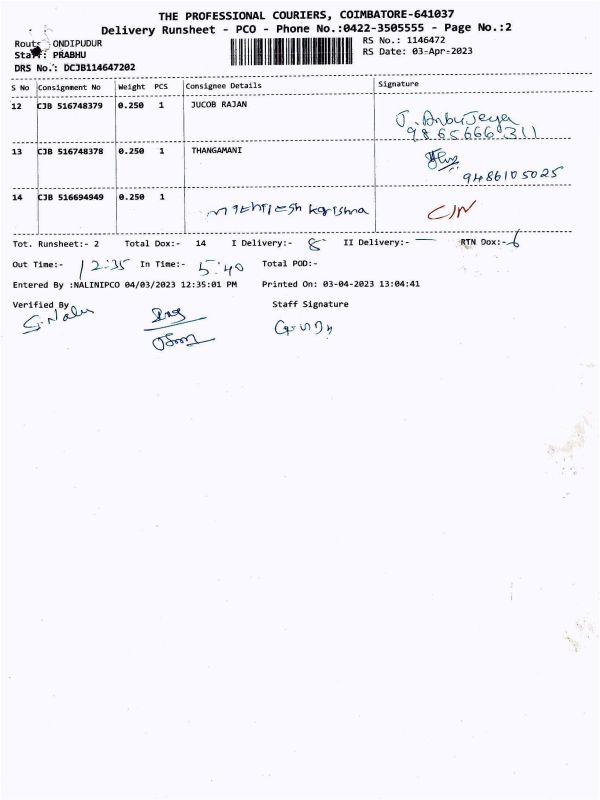 THE PROFESSIONAL COURIERS, COIMBATORE-641037
Delivery Runsheet - PCO - Phone No.:0422-3505555 - Page No.:2
Route: ONDIPUDUR
RS No.: 1146472
Staff: PRABHU
RS Date: 03-Apr-2023
DRS No.: DCJB114647202
S No Consignment No Weight PCS Consignee Details Signature
12 CJB 516748379 0.250 1 JUCOB RAJAN
J. Anbu Jeya
9865666311
13 CJB 516748378 0.250 1 THANGAMANI
9486105025
14 CJB 516694949 0.250 1 krishna C/N
Tot. Runsheet:- 2 Total Dox:- 14 I Delivery:- 8 II Delivery:- — RTN Dox:- 6
Out Time:- 12:35 In Time:- 5:40 Total POD:-
Entered By :NALINIPCO 04/03/2023 12:35:01 PM Printed On: 03-04-2023 13:04:41
Verified By Staff Signature